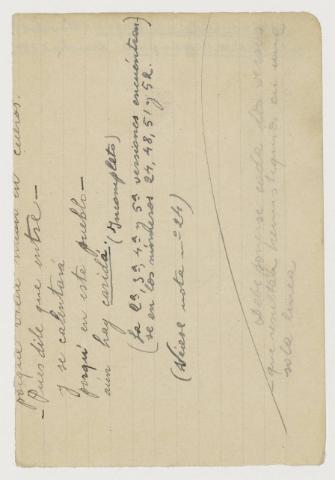 porque viene in en cueros.
– Pues dile que entre –
y se calentará
porqu' en este pueblo –
aun hay caridá. (Incompleto)
(La 2ª, 3ª, 4ª y 5ª versiones encuéntran
se en los números 24, 48, 51 y 52.
(Véase nota – 24)
Debe ponerse cada dos versos
– que resultan hemistiquios en una
sola linea